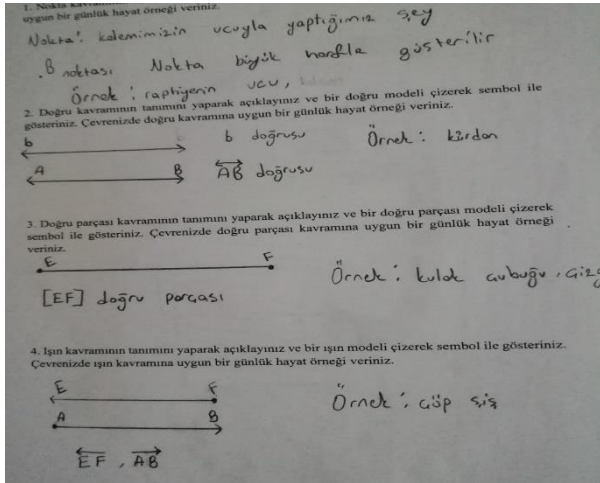 1. Nokta
uygun bir günlük hayat örneği veriniz.
Nokta: kalemimizin ucuyla yaptığımız şey
.B noktası Nokta büyük harfle gösterilir
Örnek: raptiyenin ucu,
2. Doğru kavramının tanımını yaparak açıklayınız ve bir doğru modeli çizerek sembol ile
gösteriniz. Çevrenizde doğru kavramına uygun bir günlük hayat örneği veriniz.
b b doğrusu Örnek: kürdan
A B AB doğrusu
3. Doğru parçası kavramının tanımını yaparak açıklayınız ve bir doğru parçası modeli çizerek
sembol ile gösteriniz. Çevrenizde doğru parçası kavramına uygun bir günlük hayat örneği
veriniz.
E F
Örnek: kulak çubuğu,
[EF] doğru parçası
4. Işın kavramının tanımını yaparak açıklayınız ve bir ışın modeli çizerek sembol ile gösteriniz.
Çevrenizde ışın kavramına uygun bir günlük hayat örneği veriniz.
E F
Örnek: çöp şiş
A B
EF, AB